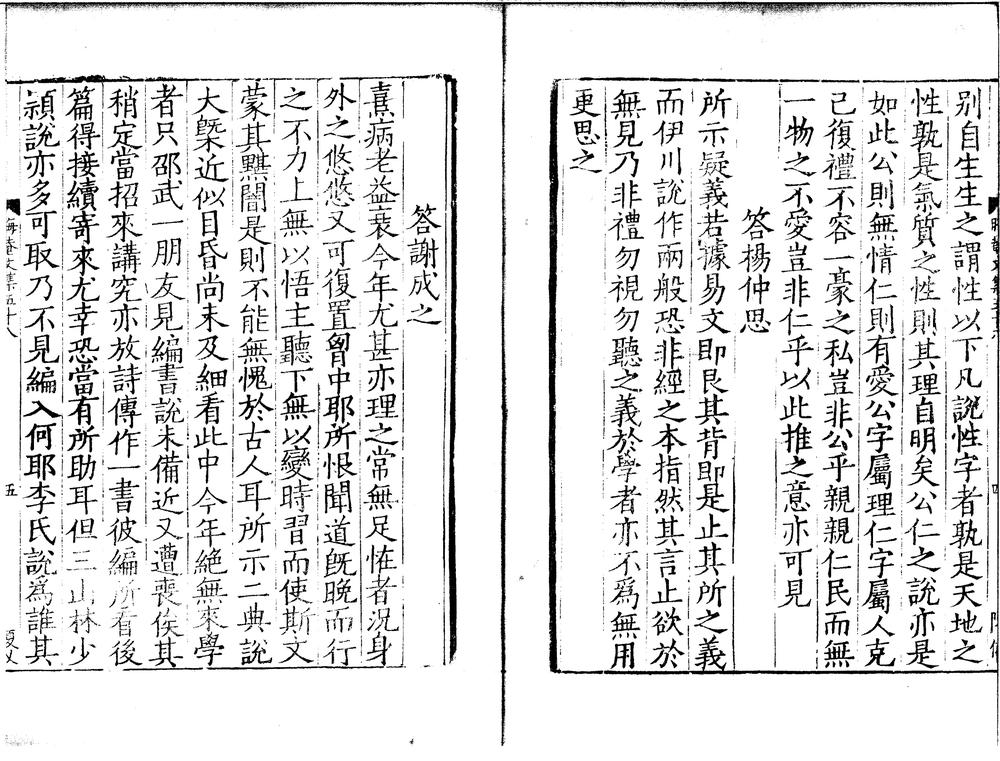 别自生生之謂性以下凡說性字者孰是天地之
性孰是氣質之性則其理自明矣公仁之說亦是
如此公則無情仁則有愛公字屬理仁字屬人克
己復禮不容一豪之私豈非公乎親親仁民而無
一物之不愛豈非仁乎以此推之意亦可見
答楊仲思
所示疑義若據易文即艮其背即是止其所之義
而伊川說作兩般恐非經之本指然其言止欲於
無見乃非禮勿視勿聽之義於學者亦不爲無用
更思之
四
答謝成之
熹病老益衰今年尤甚亦理之常無足怪者況身
外之悠悠又可復置胷中耶所恨聞道旣晚而行
之不力上無以悟主聽下無以變時習而使斯文
蒙其黮闇是則不能無愧於古人耳所示二典說
大槩近似目昏尚未及細看此中今年絶無來學
者只邵武一朋友見編書說未備近又遭喪俟其
稍定當招來講究亦放詩傳作一書彼編所看後
篇得接續寄來尤幸恐當有所助耳但三山林少
頴說亦多可取乃不見編入何耶李氏說爲誰其
晦菴文集五十八
五